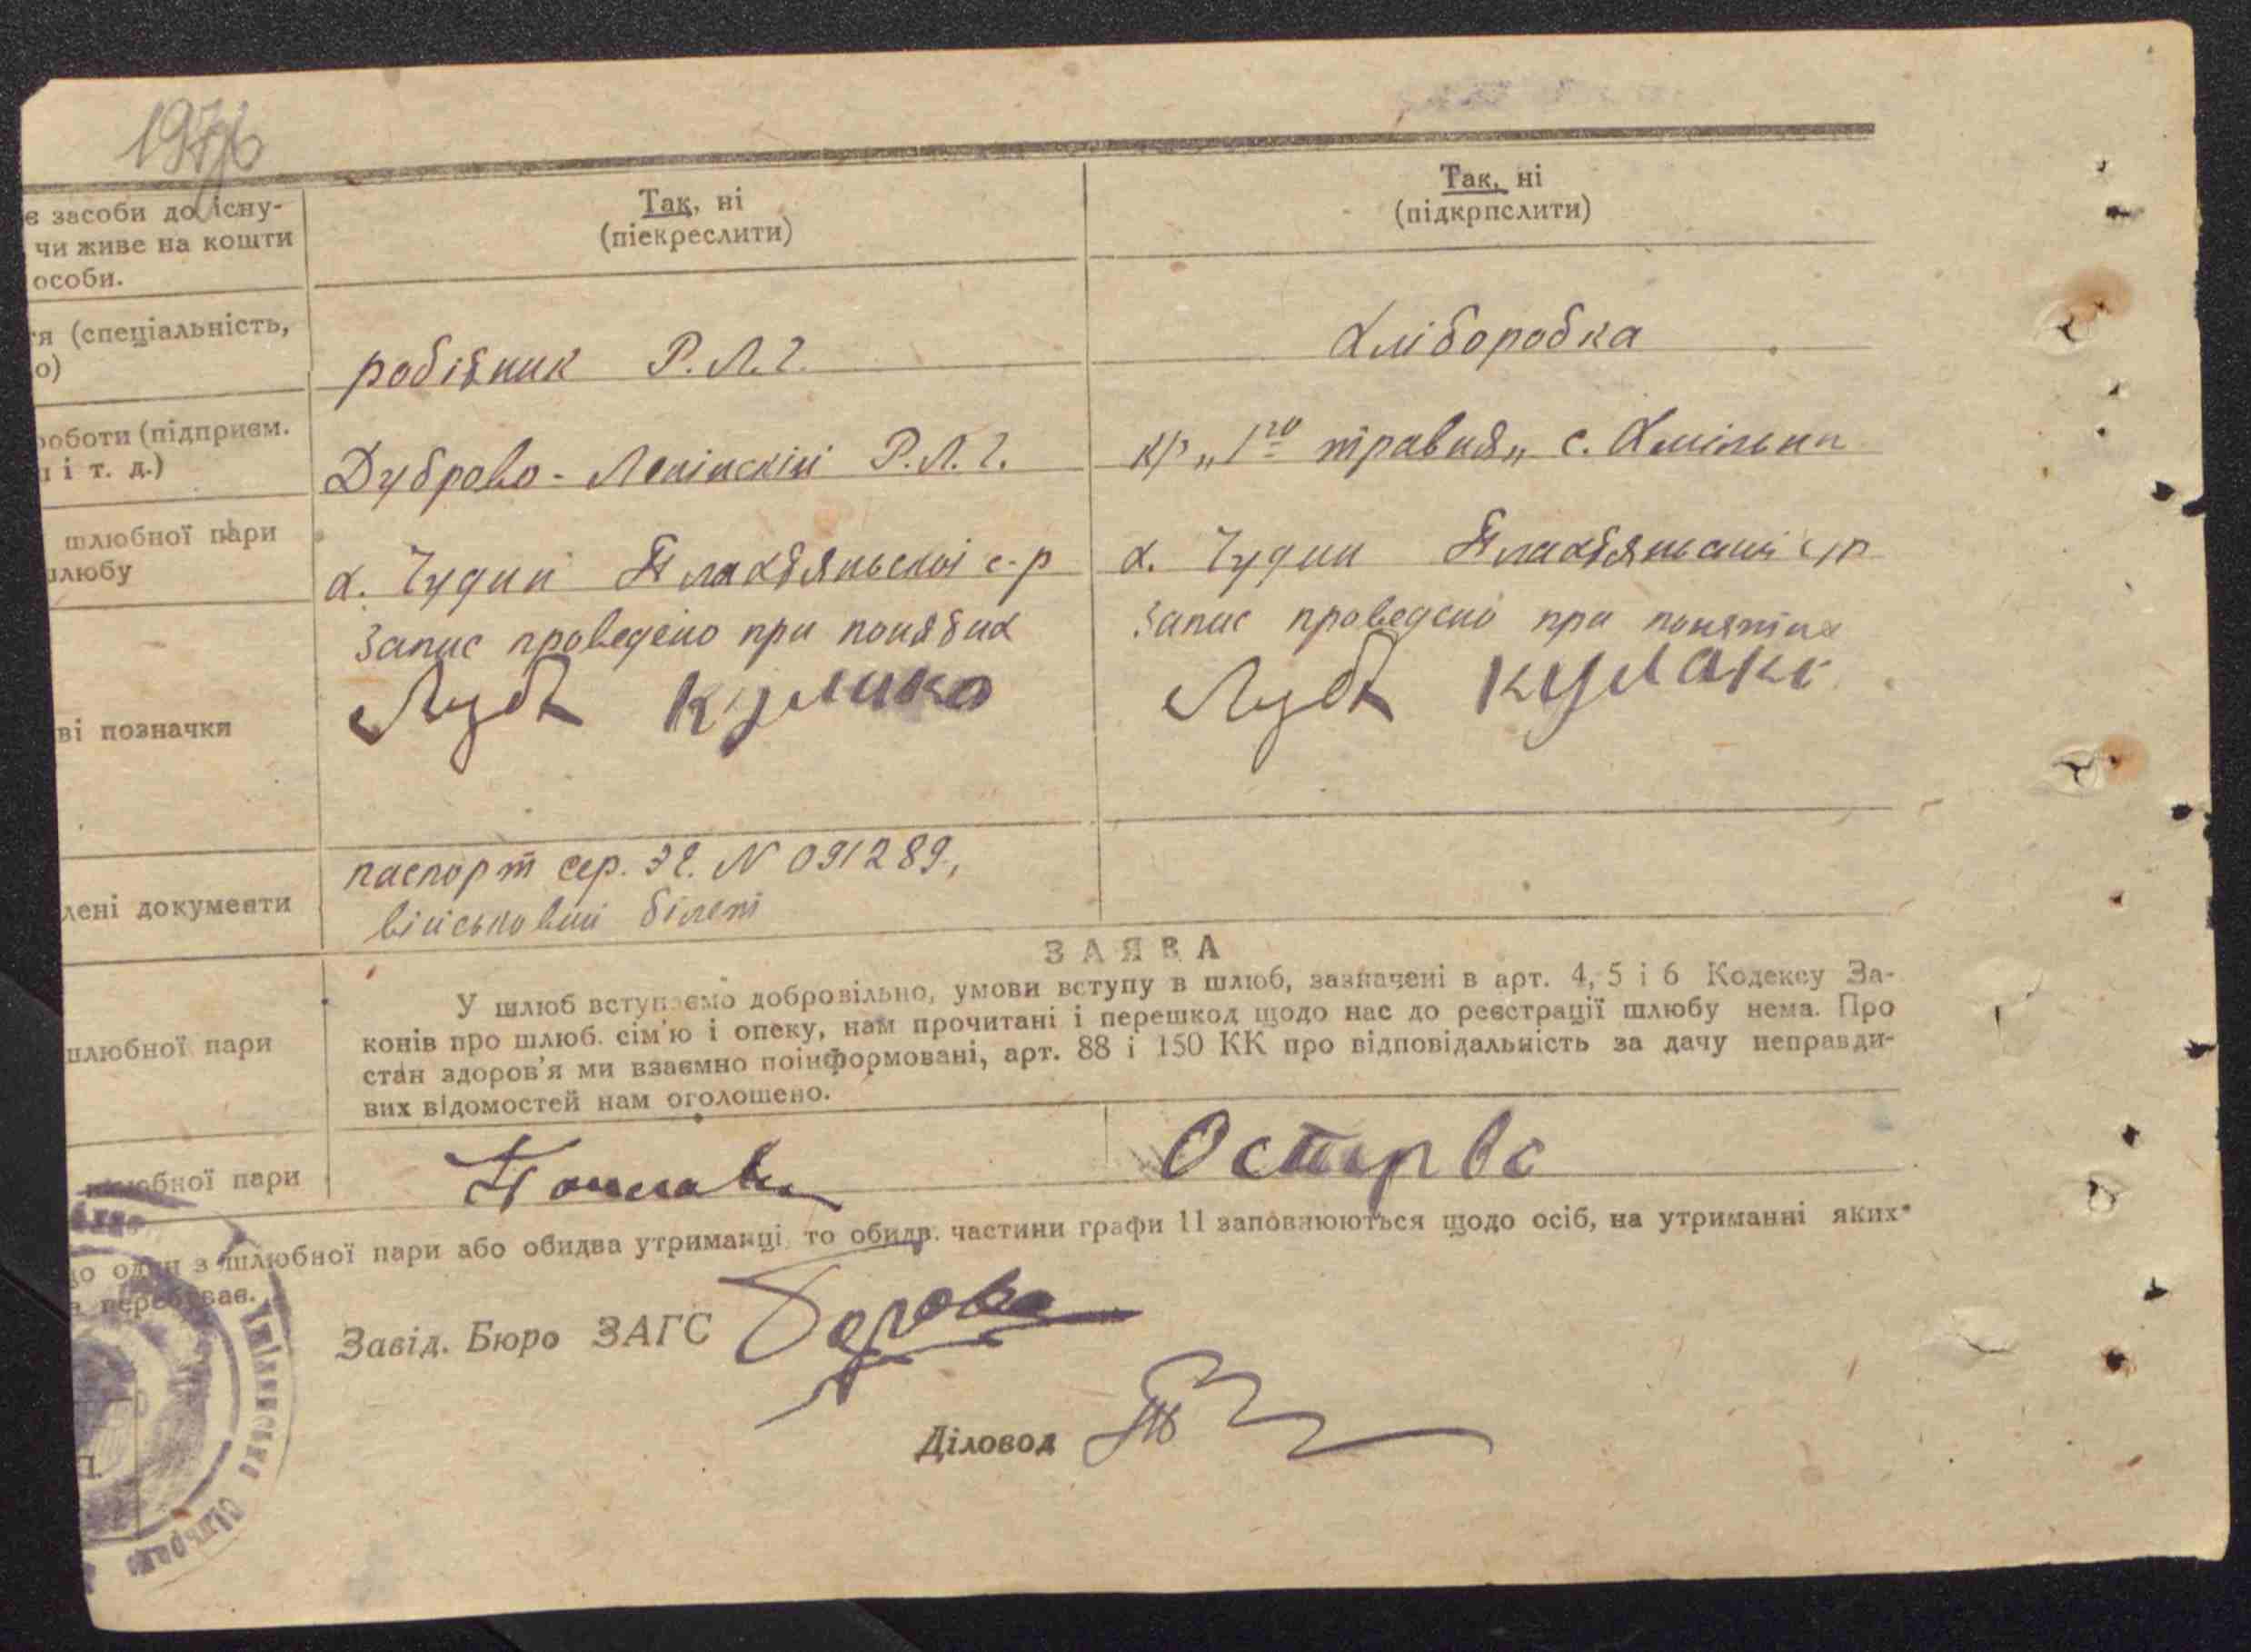 є засоби до існу-
чи живе на кошти
особи.
Так, ні
(піекреслити)
Так, ні
(підкрпслити)
тя (спеціальність,
о)
робітник Р.Л.Г.
Хліборобка
роботи (підприєм.
і т. д.)
Дуброво - Ленінскій Р.Л.Г.
к/г „1го травня„ с.
шлюбної пари
шлюбу
х. Чудин с-р
х. Чудин с/р
ві позначки
Запис проведено при понятих
Запис проведено при понятих
лені документи
паспорт сер. ЭГ. N 091289,
військовий білет
ЗАЯВА
шлюбної пари
У шлюб вступаємо добровільно, умови вступу в шлюб, зазначені в арт. 4, 5 і 6 Кодексу За-
конів про шлюб. сім'ю і опеку, нам прочитані і перешкод щодо нас до реєстрації шлюбу нема. Про
стан здоров'я ми взаємно поінформовані, арт. 88 і 150 КК про відповідальність за дачу неправди-
вих відомостей нам оголошено.
шлюбної пари
до один з шлюбної пари або обидва утриманці то обидв. частини графи 11 заповнюються щодо осіб, на утриманні яких*
перебуває.
Завід. Бюро ЗАГС
Діловод